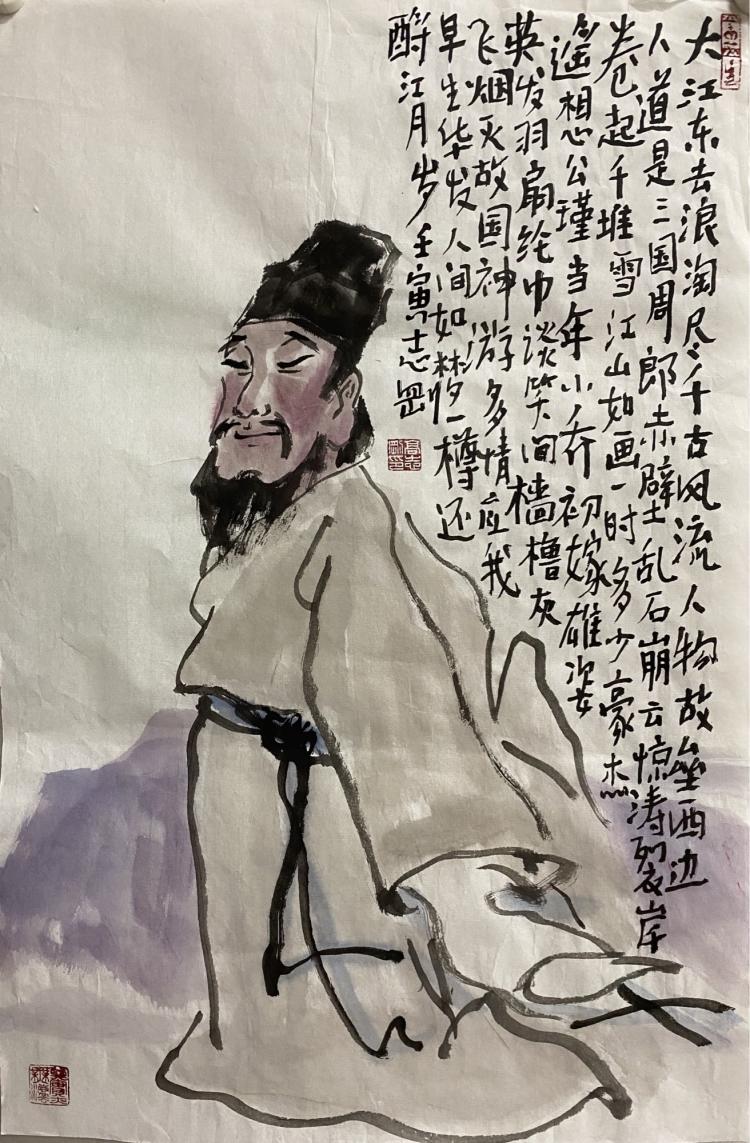 大江东去浪淘尽千古风流人物故垒西边
人道是三国周郎赤壁乱石崩云惊涛裂岸
卷起千堆雪江山如画一时多少豪杰
遥想公瑾当年小乔初嫁雄姿
英发羽扇纶巾谈笑间樯橹灰
飞烟灭故国神游多情应我
早生华发人间如梦一樽还
酹江月岁壬寅志刚